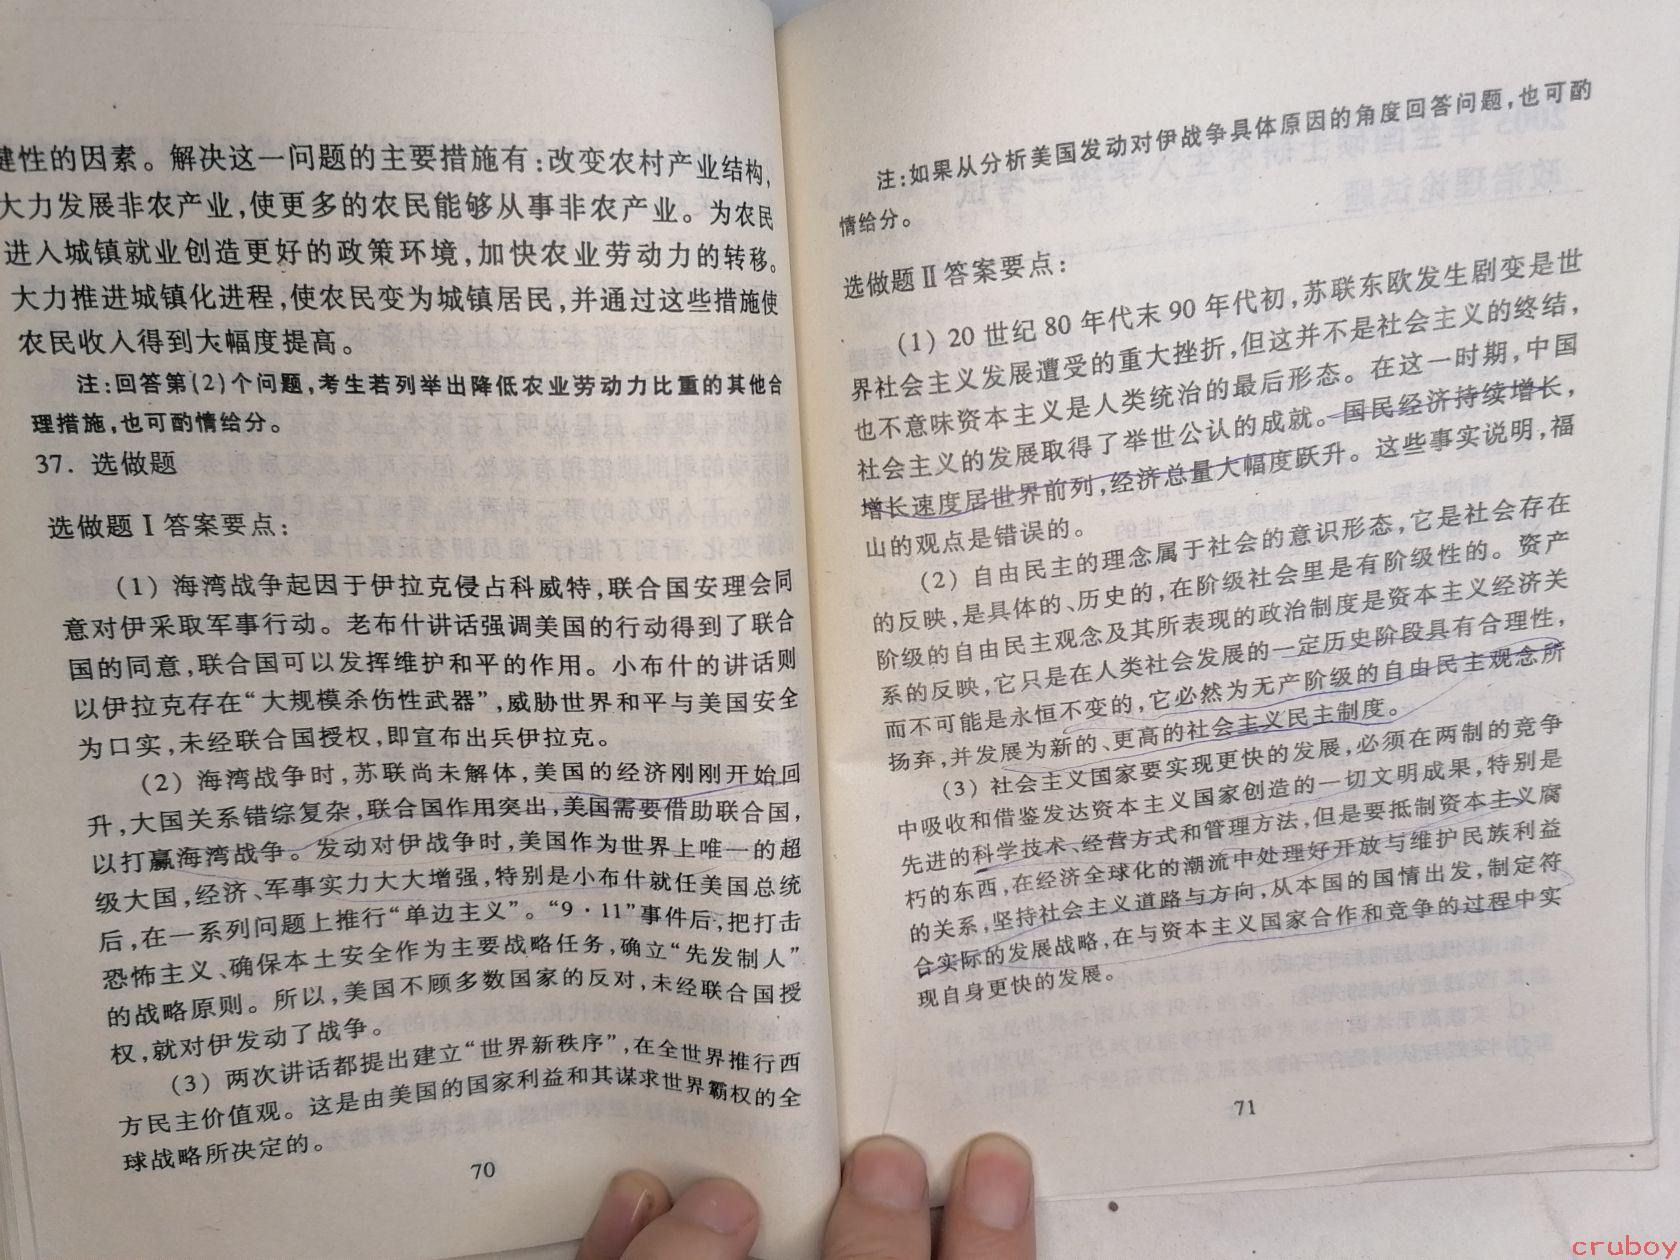 健性的因素。解决这一问题的主要措施有:改变农村产业结构,
大力发展非农产业,使更多的农民能够从事非农产业。为农民
进入城镇就业创造更好的政策环境,加快农业劳动力的转移。
大力推进城镇化进程,使农民变为城镇居民,并通过这些措施使
农民收入得到大幅度提高。
注:回答第(2)个问题,考生若列举出降低农业劳动力比重的其他合
理措施,也可酌情给分。
37. 选做题
选做题Ⅰ答案要点:
(1) 海湾战争起因于伊拉克侵占科威特,联合国安理会同
意对伊采取军事行动。老布什讲话强调美国的行动得到了联合
国的同意,联合国可以发挥维护和平的作用。小布什的讲话则
以伊拉克存在“大规模杀伤性武器”,威胁世界和平与美国安全
为口实,未经联合国授权,即宣布出兵伊拉克。
(2) 海湾战争时,苏联尚未解体,美国的经济刚刚开始回
升,大国关系错综复杂,联合国作用突出,美国需要借助联合国,
以打赢海湾战争。发动对伊战争时,美国作为世界上唯一的超
级大国,经济、军事实力大大增强,特别是小布什就任美国总统
后,在一系列问题上推行“单边主义”。“9·11”事件后,把打击
恐怖主义、确保本土安全作为主要战略任务,确立“先发制人”
的战略原则。所以,美国不顾多数国家的反对,未经联合国授
权,就对伊发动了战争。
(3) 两次讲话都提出建立“世界新秩序”,在全世界推行西
方民主价值观。这是由美国的国家利益和其谋求世界霸权的全
球战略所决定的。
70
注:如果从分析美国发动对伊战争具体原因的角度回答问题,也可酌
情给分。
选做题Ⅱ答案要点:
(1) 20 世纪 80 年代末 90 年代初,苏联东欧发生剧变是世
界社会主义发展遭受的重大挫折,但这并不是社会主义的终结,
也不意味资本主义是人类统治的最后形态。在这一时期,中国
社会主义的发展取得了举世公认的成就。国民经济持续增长,
增长速度居世界前列,经济总量大幅度跃升。这些事实说明,福
山的观点是错误的。
(2) 自由民主的理念属于社会的意识形态,它是社会存在
的反映,是具体的、历史的,在阶级社会里是有阶级性的。资产
阶级的自由民主观念及其所表现的政治制度是资本主义经济关
系的反映,它只是在人类社会发展的一定历史阶段具有合理性,
而不可能是永恒不变的,它必然为无产阶级的自由民主观念所
扬弃,并发展为新的、更高的社会主义民主制度。
(3) 社会主义国家要实现更快的发展,必须在两制的竞争
中吸收和借鉴发达资本主义国家创造的一切文明成果,特别是
先进的科学技术、经营方式和管理方法,但是要抵制资本主义腐
朽的东西,在经济全球化的潮流中处理好开放与维护民族利益
的关系,坚持社会主义道路与方向,从本国的国情出发,制定符
合实际的发展战略,在与资本主义国家合作和竞争的过程中实
现自身更快的发展。
71
cruboy